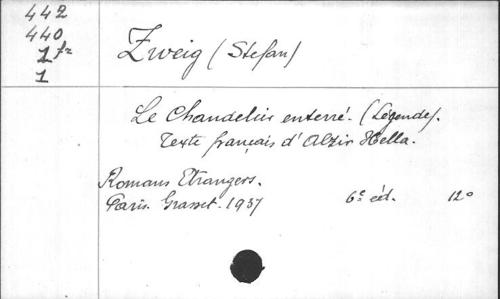 442
440
1 fr
1
Zweig (Stefan)
Le Chandelier enterré. (Légende).
Texte français d'Alzir Hella.
Romans Etrangers.
Paris. Grasset. 1937 6e éd. 12°